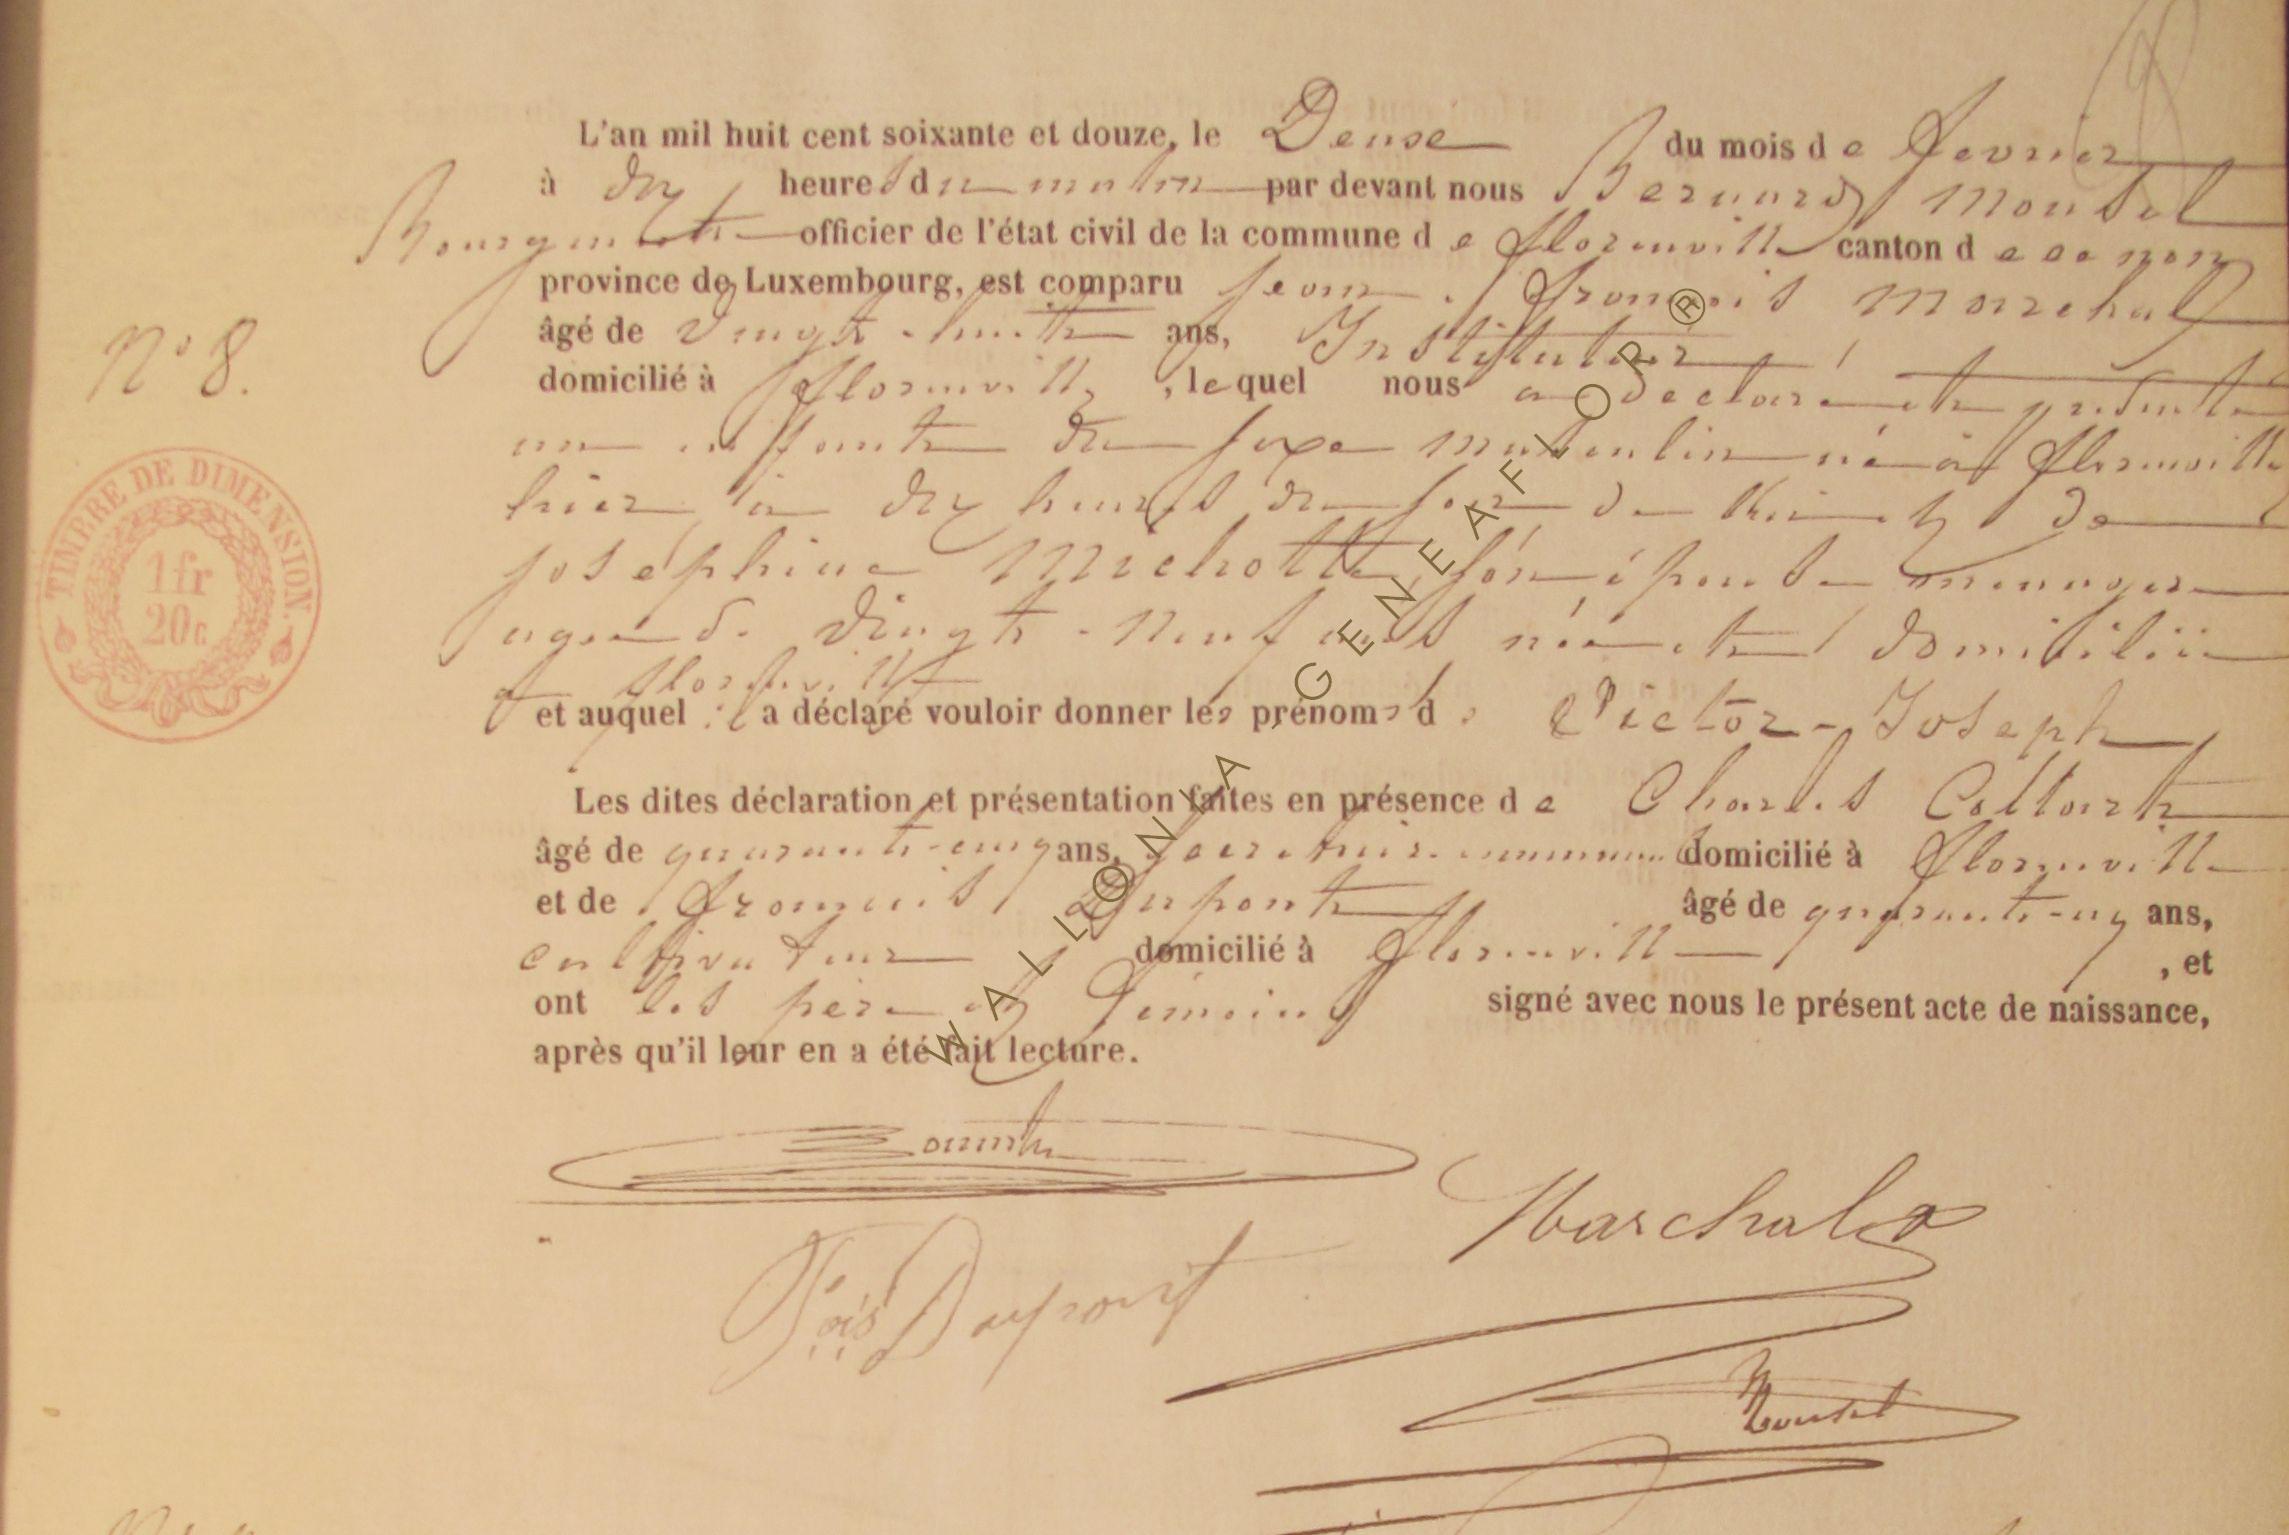 L'an mil huit cent soixante et douze, le Deuse du mois de fevrier
à dix heures du matin par devant nous Bernard Monsel
Bourgmestre officier de l'état civil de la commune de florenville canton de
province de Luxembourg, est comparu jean françois Marchal
âgé de vingt-huit ans, Instituteur
domicilié à florenville, lequel nous a déclaré et présenté
un enfant du sexe masculin né à florenville
hier à dix heures du soir de lui et de
joséphine Michotte, son épouse menagere
agée de vingt-neuf ans née et domiciliée
a florenville
et auquel il a déclaré vouloir donner les prénoms de Victor-Joseph
Les dites déclaration et présentation faites en présence de Charles Collart
âgé de quarante-cinq ans, secretaire communal domicilié à florenville
et de françois Dupont âgé de ans,
cultivateur domicilié à florenville, et
ont les père et témoins signé avec nous le présent acte de naissance,
après qu'il leur en a été fait lecture.
N° 8.
TIMBRE DE DIMENSION.
1 fr
20 c
Marchal
Fçois Dupont
Monsel
WALLONIA-GENEAFLOR ®